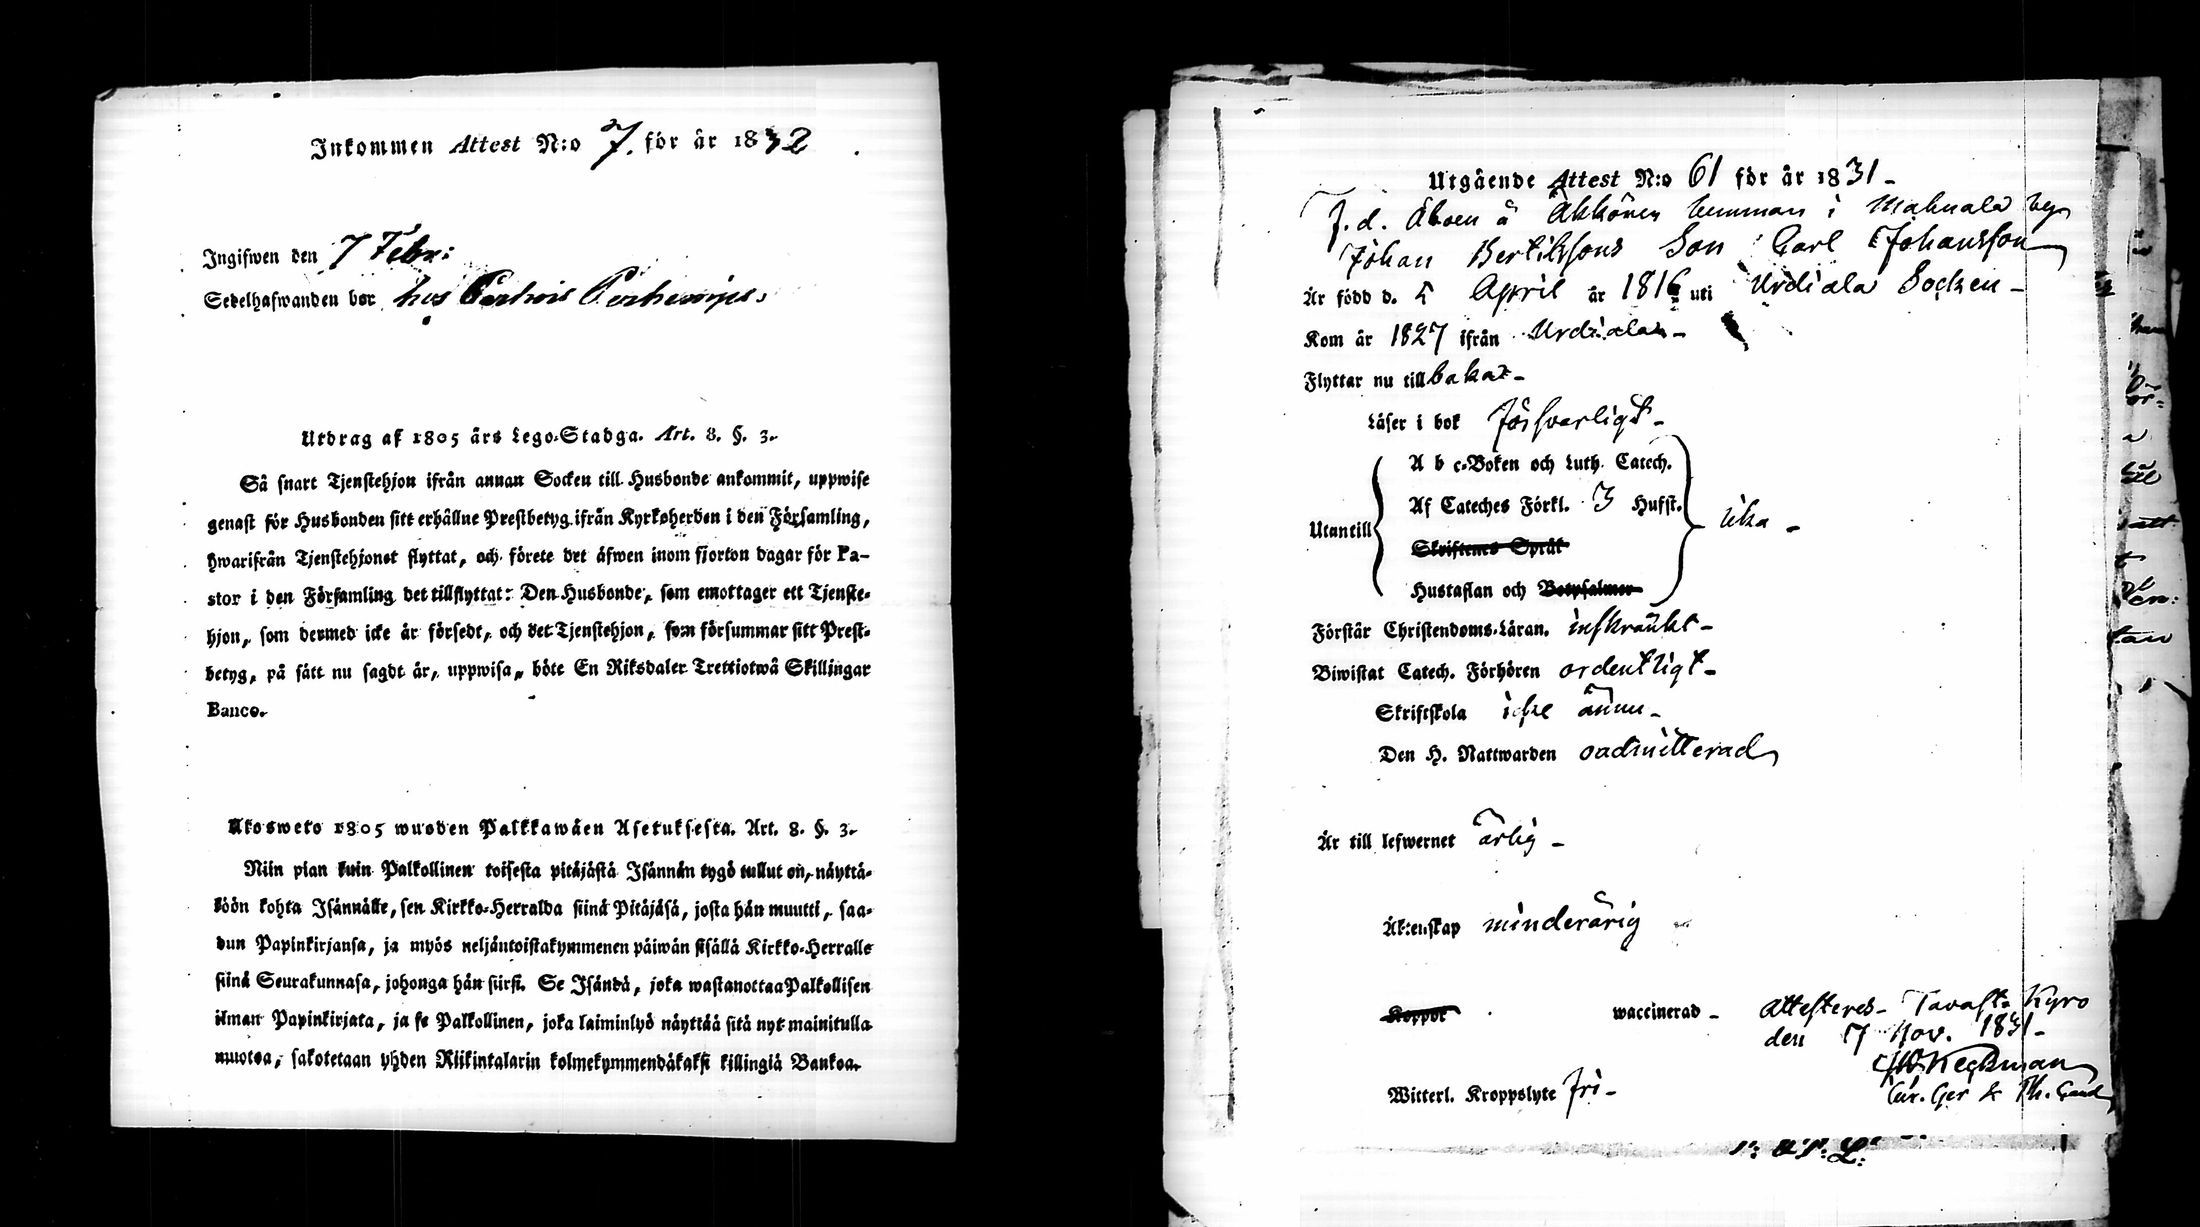 Inkommen Attest N:o 7. för år 1832
Ingifwen den 7 Febr:
Sedelhafwanden bor hos
Utdrag af 1805 års Lego-Stadga. Art. 8. §. 3.
Så snart Tjenstehjon ifrån annan Socken till Husbonde ankommit, uppwise
genast för Husbonden sitt erhållne Prestbetyg ifrån Kyrkoherden i den Församling,
hwarifrån Tjenstehjonet flyttat, och förete det äfwen inom fjorton dagar för Pa-
stor i den Församling det tillflyttat: Den Husbonde, som emottager ett Tjenste-
hjon, som dermed icke är försedt, och det Tjenstehjon, som försummar sitt Prest-
betyg, på sätt nu sagdt är, uppwisa, böte En Riksdaler Trettiotwå Skillingar
Banco.
Ulosweto 1805 wuoden Palkkawäen Asetuksesta. Art. 8. §. 3.
Niin pian kuin Palkollinen toisesta pitäjästä Isännän tygö tullut on, näyttä-
köön kohta Isännälle, sen Kirkko-Herralda siinä Pitäjäsä, josta hän muutti, saa-
dun Papinkirjansa, ja myös neljäntoistakymmenen päiwän sisällä Kirkko-Herralle
siinä Seurakunnasa, johonga hän siirsi. Se Isändä, joka wastanottaa Palkollisen
ilman Papinkirjata, ja se Palkollinen, joka laiminlyö näyttää sitä nyt mainitulla
muotoa, sakotetaan yhden Riikintalarin kolmekymmendäkaksi killingiä Bankoa.
Utgående Attest N:o 61 för år 1831-
F. d. Åboen å hemman i Mahnala by
Johan Bertilssons Son Carl Johansson
Är född d. 5 April år 1816 uti Urdiala Socken-
Kom år 1827 ifrån Urdiala-
Flyttar nu till bakar-
Läser i bok försvarligt-
A b c-Boken och Luth. Catech.
Af Cateches Förkl. 3 Hufst.
Utantill lika-
Skriftenes Språk
Hustaflan och Botpsalmer
Förstår Christendoms-Läran. inskränkt-
Biwistat Catech. Förhören ordentligt-
Skriftskola icke ännu-
Den H. Nattwarden oadmitterad
Är till lefwernet ärlig-
Äktenskap minderårig
Koppor waccinerad- Attesteres- Tavast Kyro
den 7 Nov. 1831-
Witterl. Kroppslyte fri-